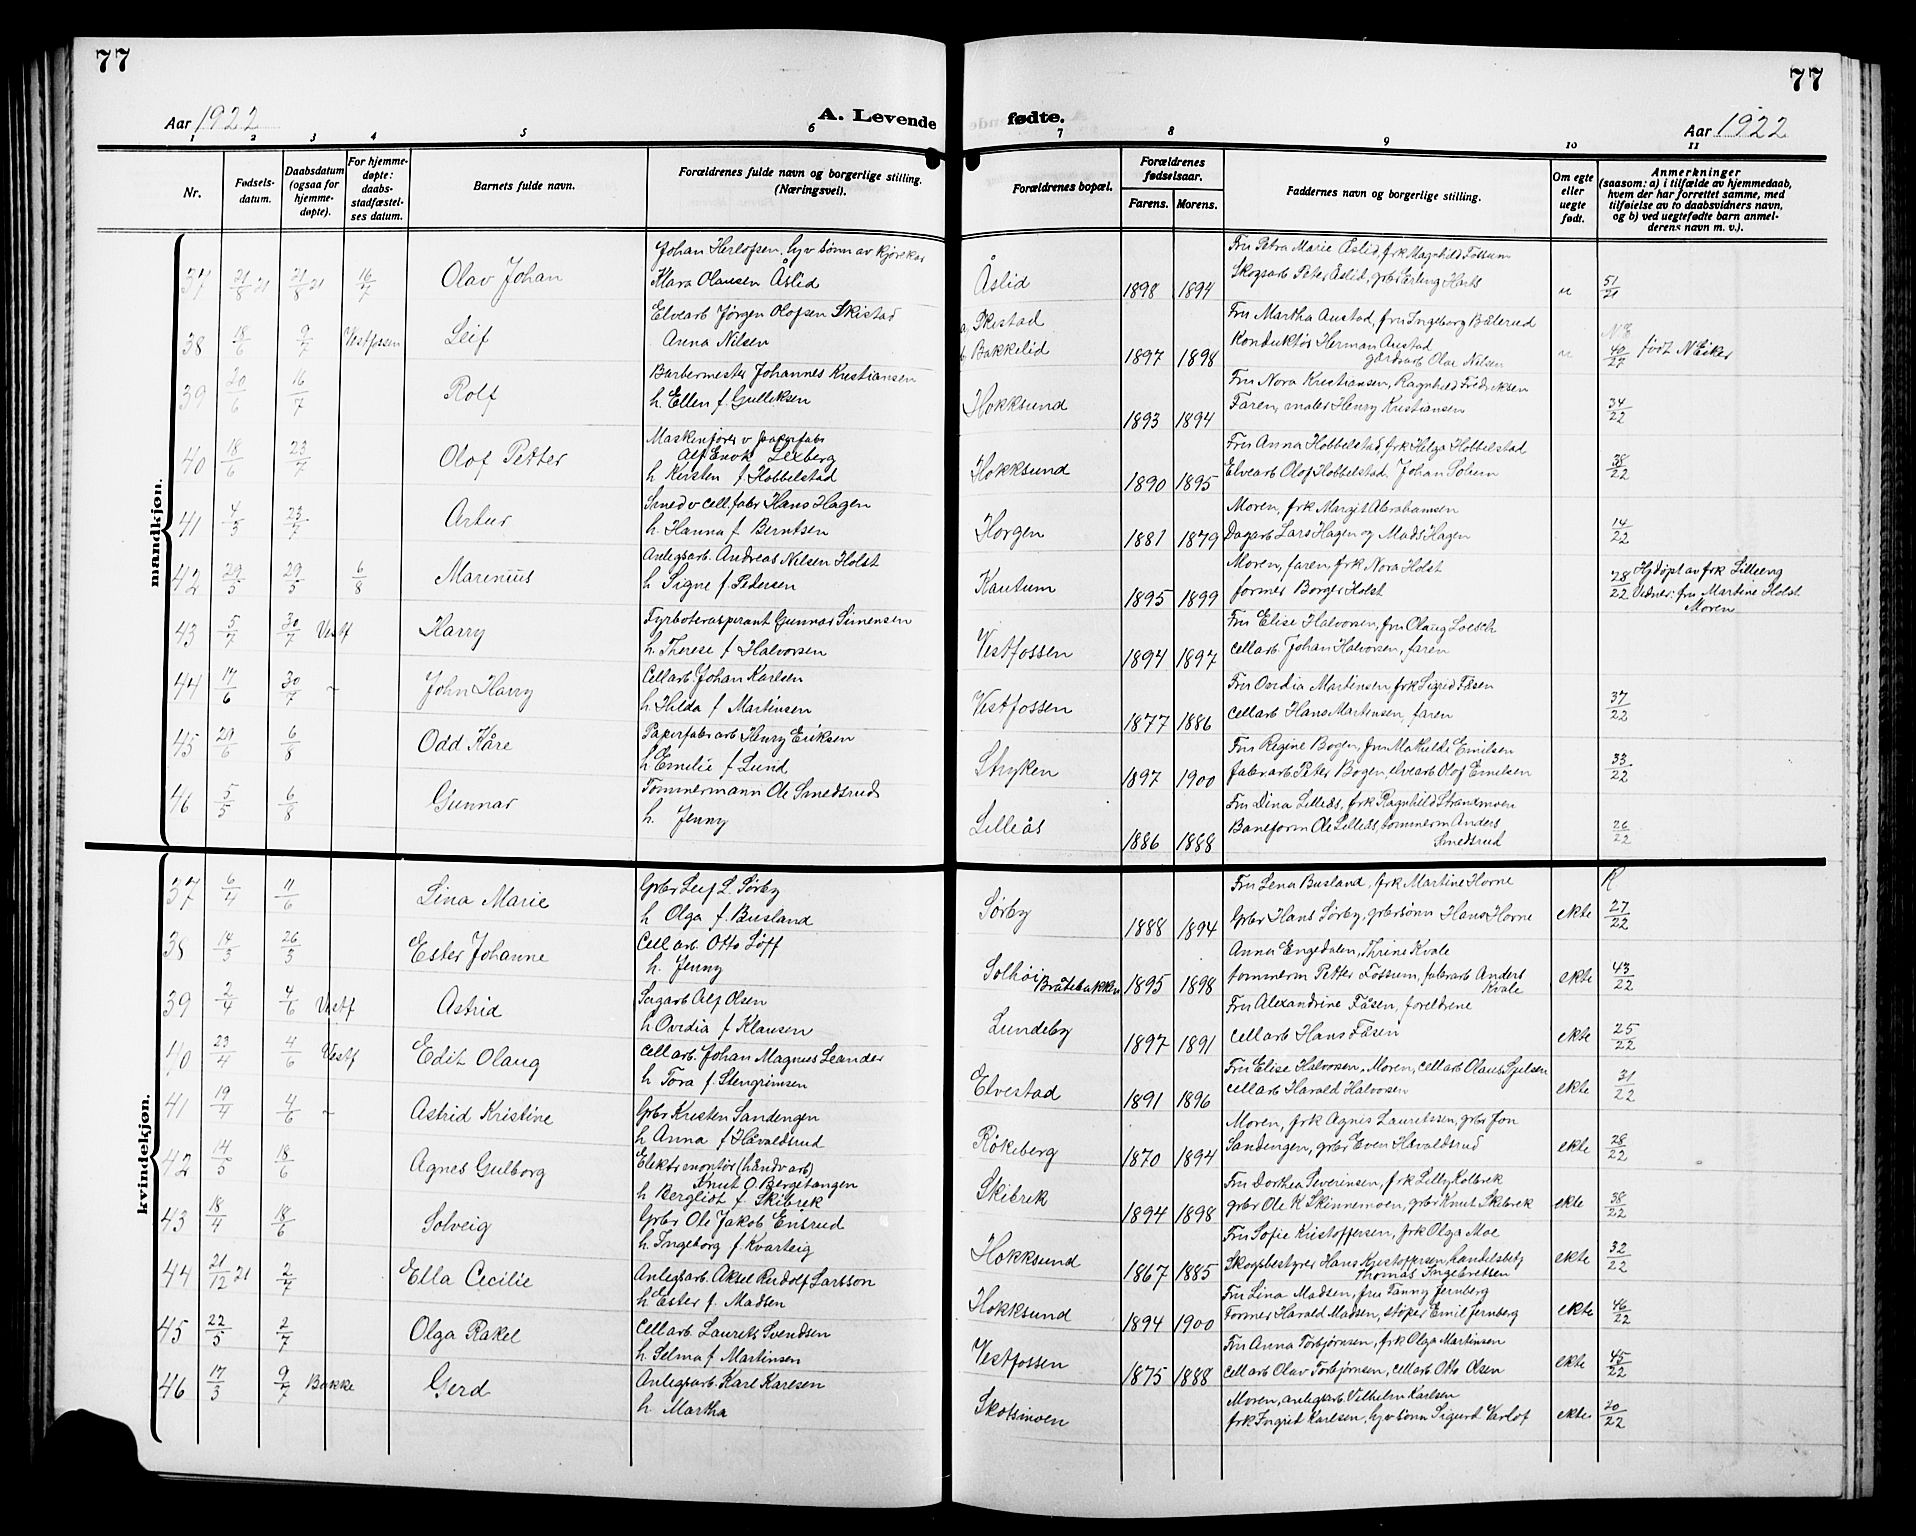 77
77
Aar 1922
A. Levende
fødte.
Aar 1922
1 2 3 4 5 6 7 8 9 10 11
Nr.
Fødsels-
datum.
Daabsdatum
(ogsaa for
hjemme-
døpte).
For hjemme-
døpte:
daabs-
stadfæstel-
ses datum.
Barnets fulde navn.
Forældrenes fulde navn og borgerlige stilling.
(Næringsvei).
Forældrenes bopæl.
Forældrenes
fødselsaar.
Farens. Morens.
Faddernes navn og borgerlige stilling.
Om egte
eller
uegte
født.
Anmerkninger
(saasom: a) i tilfælde av hjemmedaab,
hvem der har forrettet samme, med
tilføielse av to daabsvidners navn,
og b) ved uegtefødte barn anmel-
derens navn m. v.).
mandkjøn.
Johan Herlofsen, hjv sønn av kjørekar Fru Petra Marie Åslid, frk Magnhild Fossum
37 21/8 21 21/8 21 16/7 Olav Johan Klara Olausen Åslid Åslid 1898 1894 Skogsarb Peter Åslid, grbr Erling Horts u 51/21
Elvearb Jørgen Olofsen Skistad a, Skistad Fru Martha Austad, fru Ingeborg Bålerud
38 18/6 9/7 Vestfossen Leif Anna Nilsen b. Bakkelid 1897 1898 Konduktør Herman Austad u 40/27 født N Eiker
gårdsarb Olav Nilsen
Barbermester Johannes Kristiansen Fru Nora Kristiansen, Ragnhild Fredriksen
39 20/6 16/7 Rolf h. Ellen f. Gulliksen Hokksund 1893 1894 Faren, maler Henry Kristiansen 34/22
Maskinfører v papirfabr Fru Anna Hobbelstad, frk Helga Hobbelstad
40 18/6 23/7 Olof Petter Alf Enok Lexberg Hokksund 1890 1895 Elvearb Olof Hobbelstad, Johan Solum 38/22
h Kirsten f Hobbelstad
Smed v cell.fabr Hans Hagen Moren, frk Margit Abrahamsen
41 4/5 23/7 Artur h. Hanna f Berntsen Horgen 1881 1879 Dagarb Lars Hagen og Mads Hagen 14/22
Anlegsarb. Andreas Nilsen Holst Moren, faren, frk Nora Holst
42 29/5 29/5 6/8 Marenius h Signe f Pedersen Kautum 1895 1899 former Borger Holst 28/22 Hjdøpt av frk Lilleeng
Vidner: fru Martine Holst
Moren
Fyrbøteraspirant Gunnar Simensen Fru Elise Halvorsen, fru Olaug Loesch
43 5/7 30/7 Vestf Harry h. Therese f Halvorsen Vestfossen 1894 1897 cellarb Johan Halvorsen, faren
Cellarb Johan Karlsen Fru Ovidia Martinsen frk Sigrid Fåsen
44 14/6 30/7 ~ John Harry h Hilda f Martinsen Vestfossen 1877 1886 cellarb Hans Martinsen, faren 37/22
Papirfabr arb Henry Eriksen Fru Regine Bogen, fru Mathilde Emilsen
45 29/6 6/8 Odd Kåre h Emilie f Lund Stryken 1897 1900 fabr arb Peter Bogen, elvearb Olof Emilsen 33/22
Tømmermann Ole Smedsrud Fru Dina Lilleås, frk Ragnhild Strandmoen
46 5/5 6/8 Gunnar h. Jenny Lilleås 1886 1888 Baneform Ole Lilleås, tømmerm Anders 26/22
Smedsrud
kvindekjøn.
37 6/4 11/6 Lina Marie Grbr Leif L. Sørby Sørby 1888 1894 Fru Lena Busland, frk Martine Horne R
h Olga f. Busland Grbr Hans Sørby, grbrsønn Hans Horne ekte 27/22
38 14/3 26/3 Ester Johanne Cellarb Otto Løff Solhøi Bråtebakken 1895 1898 Anna Engedalen, Thrine Kvale
h. Jenny tømmerm Petter Fossum, fabr arb Anders ekte 43/22
Kvale
39 2/4 4/6 Vestf Astrid Sagarb Alf Olsen Lundeby 1897 1891 Fru Alexandrine Fåsen, foreldrene
h Ovidia f Klausen cellarb Hans Fåsen ekte 25/22
40 23/4 4/6 Vestf Edit Olaug cellarb. Johan Magnus Leander Elvestad 1891 1896 Fru Elise Halvorsen, Moren, cellarb Olaus Gjelsen
h Tora f. Stengrimsen cellarb Harald Halvorsen ekte 31/22
41 19/4 4/6 ~ Astrid Kristine Grbr Kristen Sandengen Røkeberg 1870 1894 Moren, frk Agnes Lauretssen, grbr Jon
h Anna f Håvaldsrud Sandengen, grbr Even Håvaldsrud ekte 28/22
42 14/5 18/6 Agnes Gulborg Elektr montør (håndv arb) Skibrek 1894 1898 Fru Dorthea Severinsen, frk Lilly Kolbrek
Knut O Bergetangen grbr Ole K Skinnemoen, grbr Knut Skibrek ekte 38/22
h Bergliot f Skibrek
43 18/4 18/6 Solveig Grbr Ole Jakob Eusrud Hokksund 1867 1885 Fru Sofie Kristoffersen, frk Olga Moe
h. Ingeborg f. Kvarteig Skogsbestyrer Hans Kristoffersen, handelsbetj ekte 32/22
Thomas Ingebretsen
44 21/12 21 2/7 Ella Cecilie Anlegsarb. Aksel Rudolf Larsson Hokksund 1894 1900 Fru Lina Madsen, fru Fanny Jernberg
h Ester f. Madsen Former Harald Madsen, støper Emil Jernberg ekte 46/22
45 22/5 2/7 Olga Rakel Cellarb. Laurits Svendsen Vestfossen 1875 1888 Fru Anna Torbjørnsen, frk Olga Martinsen
h. Selma f Martinsen cellarb Olav Torbjørnsen, cellarb Otto Olsen ekte 45/22
46 17/3 9/7 Bakke Gerd Anlegsarb. Karl Karlsen Skotsmoen Moren, anlegsarb Vilhelm Karlsen
h Martha frk Ingrid Karlsen, hjv sønn Sigurd Varlof ekte 20/22